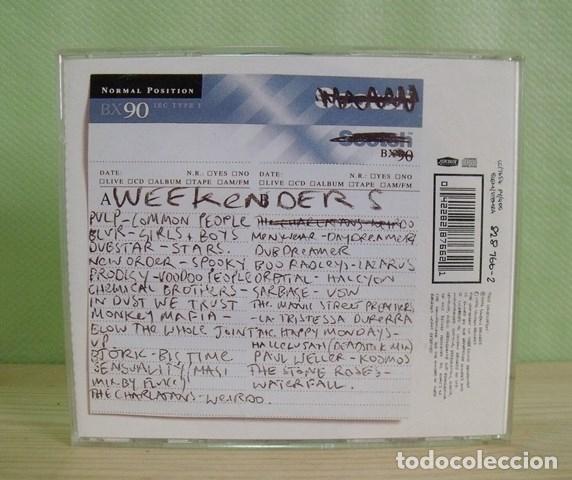 NORMAL POSITION
BX90 IEC TYPE I
Scotch™
BX90
DATE: N.R.: □YES □NO
□LIVE □CD □ALBUM □TAPE □AM/FM
DATE: N.R.: □YES □NO
□LIVE □CD □ALBUM □TAPE □AM/FM
A WEEKENDERS
PULP-COMMON PEOPLE
BLUR-GIRLS + BOYS
DUBSTAR-STARS.
NEW ORDER-SPOOKY
PRODIGY-VOODOO PEOPLE
CHEMICAL BROTHERS-
IN DUST WE TRUST
MONKEY MAFIA-
BLOW THE WHOLE JOINT
UP
BJÖRK-BIG TIME
SENSUALITY/MASI
MIX BY FLUKE)
THE CHARLATANS-WEIRDO.
THE CHARLATANS-WEIRDO
MENSWEAR-DAYDREAMER
DUB DREAMER
BOO RADLEYS-LAZARUS
ORBITAL-HALCYON
GARBAGE-VOW
THE MANIC STREET PREACHERS
-LA TRISTESSA DURERRA
THE HAPPY MONDAYS-
HALLELUJAH (DEADSTOCK MIX)
PAUL WELLER-KOSMOS
THE STONE ROSES-
WATERFALL.
828 766-2
todocoleccion
todocoleccion.net